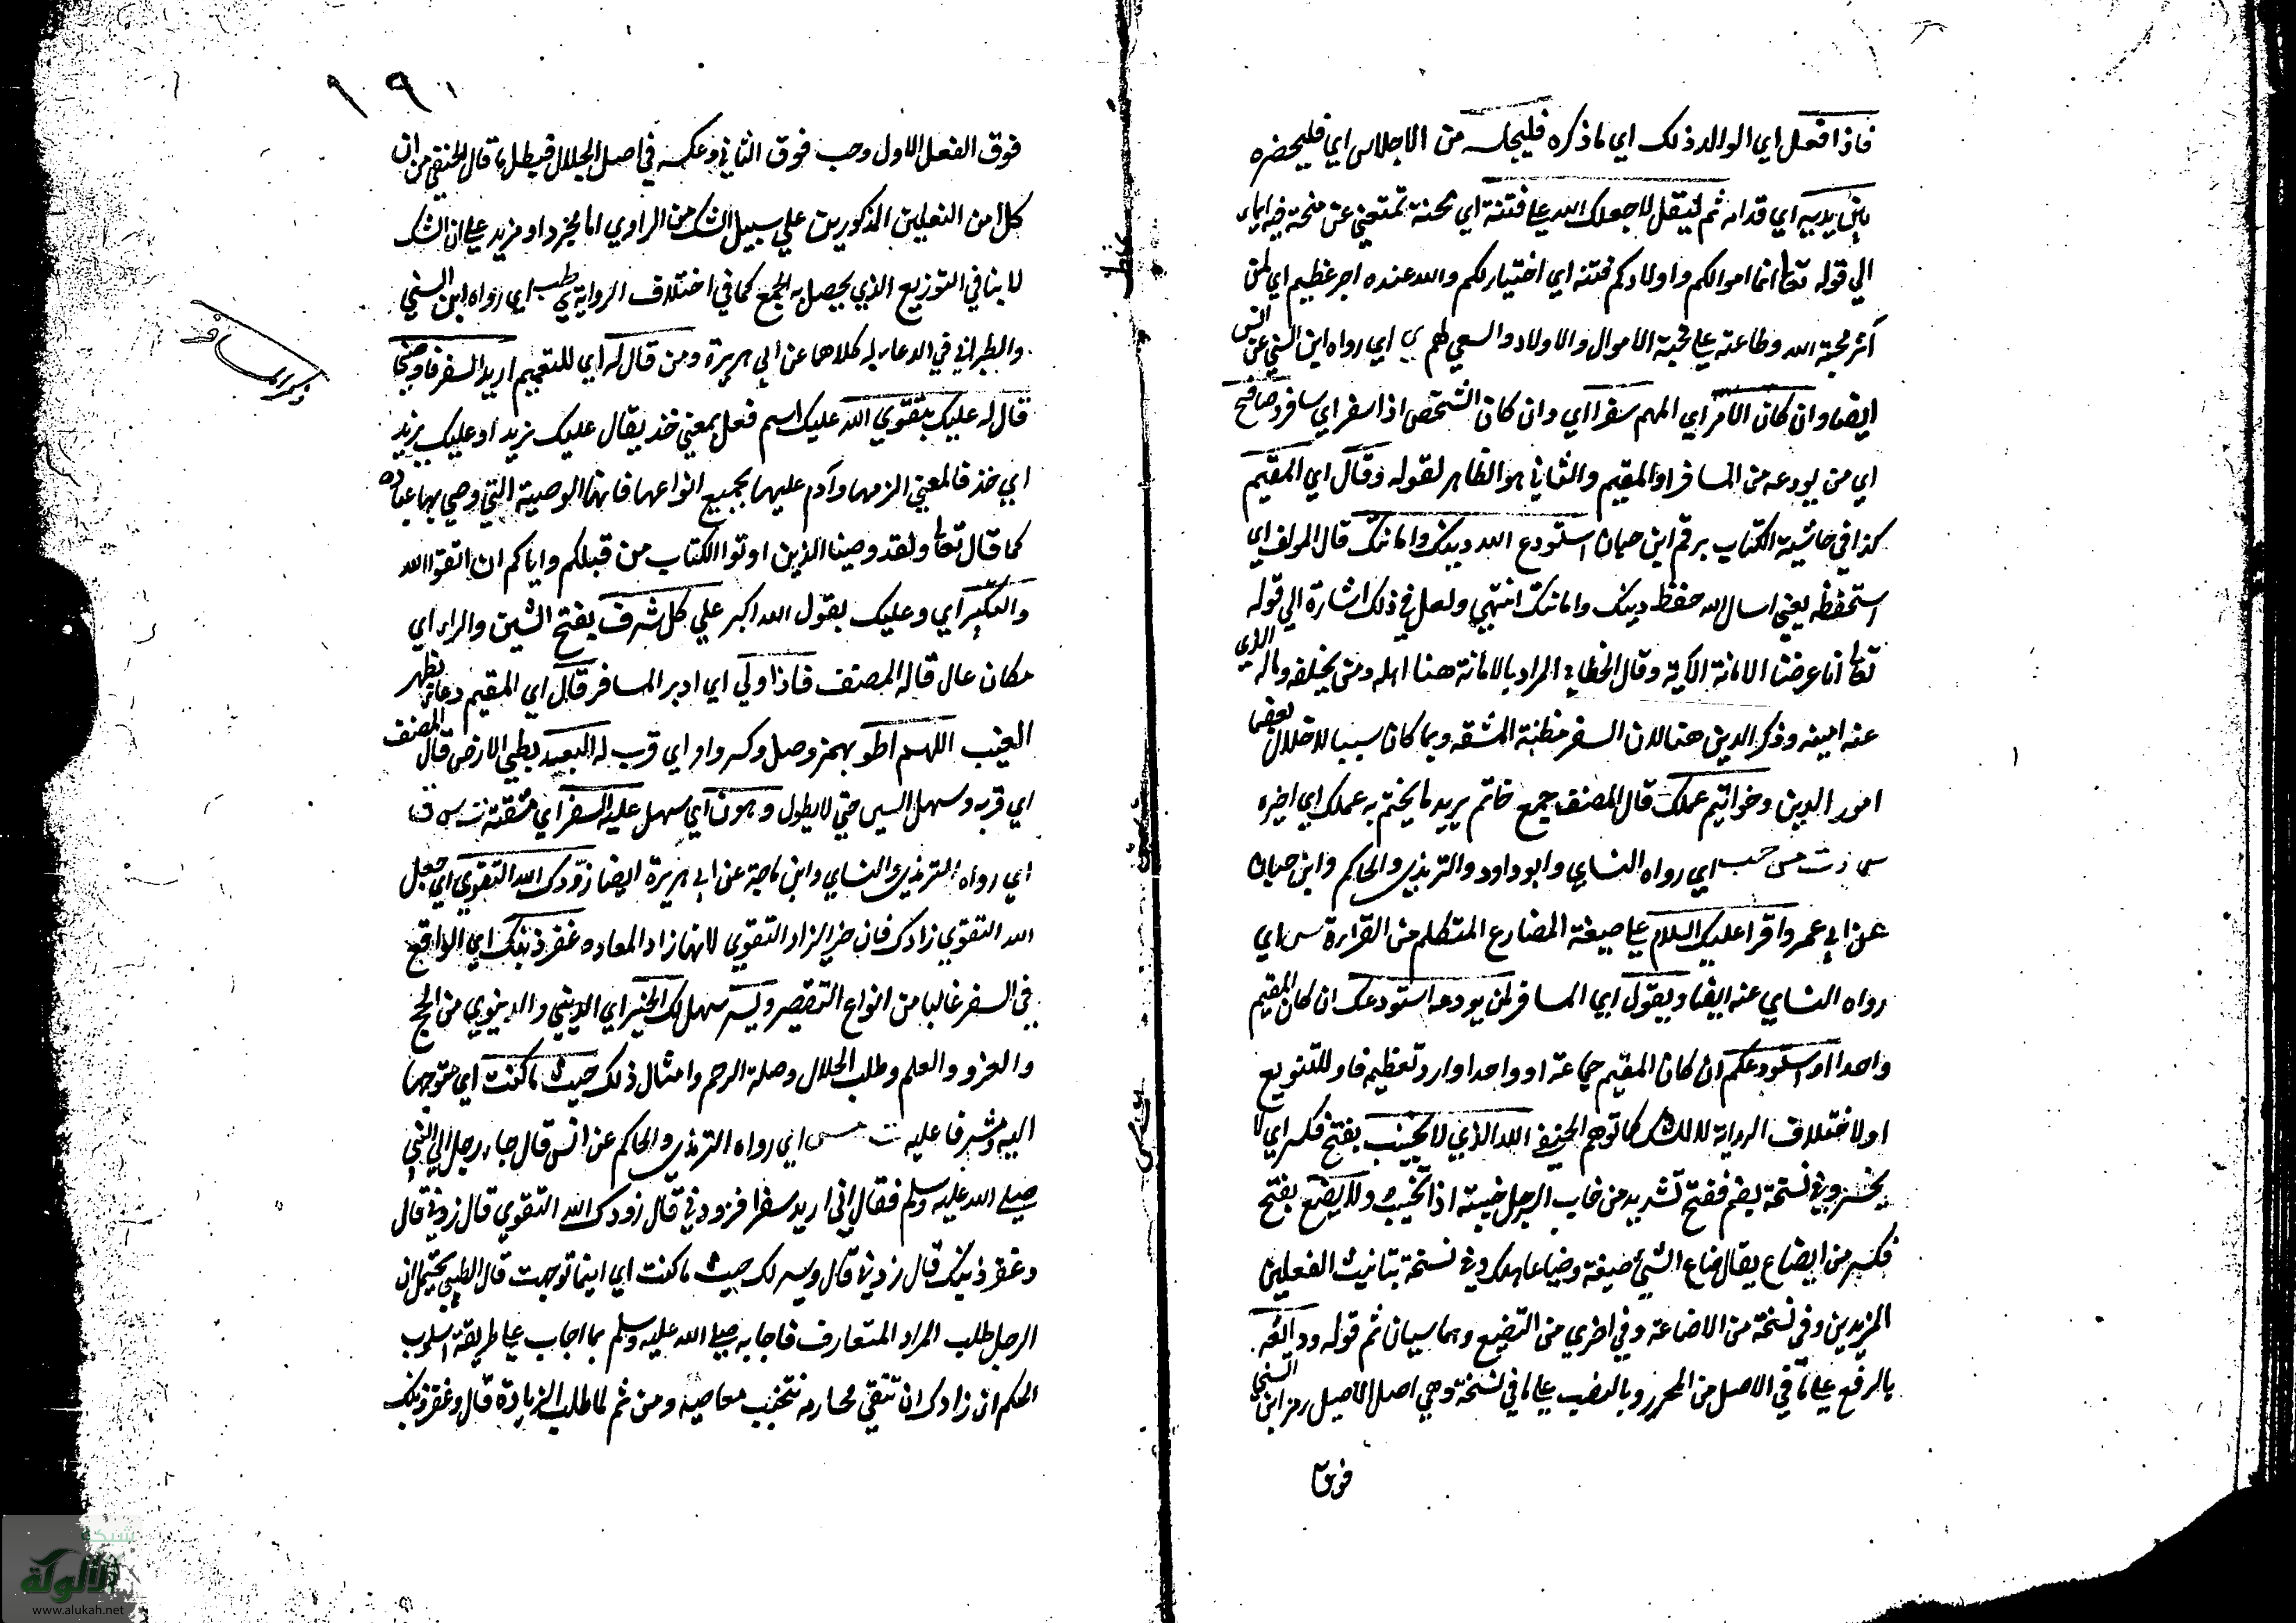 فاذا فعل اي الوالد ذلك اي ما ذكره فليجلسه من الاجلاس اي فليحضره
بين يديه اي قدامه ثم ليقل لا جعلك الله علي فتنة اي محنة تمنعني عن منحة فيه ايماء
الي قوله تعالى انما اموالكم واولادكم فتنة اي اختبار لكم والله عنده اجر عظيم اي لمن
آثر محبة الله وطاعته على محبة الاموال والاولاد والسعي لهم ي اي رواه ابن السني عن انس
ايضا وان كان الامر اي المهم سفرا اي وان كان الشخص اذا سفر اي سافر صافح
اي من يودعه من المسافر او المقيم والثاني هو الظاهر لقوله وقال اي المقيم
كذا في حاشية الكتاب برقم ابن حبان استودع الله دينك وامانتك قال المولف اي
استحفظه يعني اسال الله حفظ دينك وامانتك انتهي ولعل في ذلك اشارة الي قوله
تعالى انا عرضنا الامانة الآية وقال الخطابي المراد بالامانة هنا اهله ومن يخلفه وماله الذي
عند امينه وذكر الدين هنا لان السفر مظنة المشقه ربما كان سببا لاخلال بعض
امور الدين وخواتيم عملك قال المصنف جمع خاتم يريد ما يختم به عملك اي اخره
س د ت مس حب اي رواه النساي وابو داود والترمذي والحاكم وابن حبان
عن ابن عمر واقرا عليك السلام على صيغة المضارع المتكلم من القراءة س اي
رواه النساي عنه ايضا ويقول اي المسافر لمن يودعه استودعك ان كان المقيم
واحدا او استودعكم ان كان المقيم جماعة او واحدا واراد تعظيمه فاو للتنويع
او لاختلاف الرواية لا للشك كما توهم الحنفي الله الذي لا يخيب بفتح فكسر اي لا
يخسر وفي نسخة بضم ففتح تشديد من خاب الرجل خيبة اذا لخيب ولا يضيع بفتح
فكسر من ايضاع يقال ضاع الشيء ضيعة وضياعا هلك وفي نسخة بتانيث الفعلين
المزيدين وفي نسخة من الاضاعة وفي اخري من التضييع وهما سيان ثم قوله ودائعه
بالرفع على ما في الاصل من المحرر وبالنصب على ما في نسخة وهي اصل الاصيل رمز ابن السني
فوق
١٩٠
فوق الفعل الاول وحب فوق الثاني وعكسه في اصل الجلال فبطل ما قال الحنفي من ان
كلا من الفعلين المذكورين علي سبيل الشك من الراوي اما مجرد او مزيد على ان الشك
لا ينافي التوزيع الذي يحصل به الجمع كما في اختلاف الرواية ي طب اي رواه ابن السني
والطبراني في الدعاء له كلاهما عن ابي هريرة ومن قال له اي للمقيم اريد السفر فاوصني
قال له عليك بتقوي الله عليك اسم فعل بمعني خذ يقال عليك زيد او عليك بزيد
اي خذ فالمعني الزمها وآدم عليها بجميع انواعها فانها الوصية التي وصي بها عباده
كما قال تعالى ولقد وصينا الذين اوتوا الكتاب من قبلكم واياكم ان اتقوا الله
والتكبير اي وعليك بقول الله اكبر علي كل شرف بفتح الشين والراء اي
مكان عال قاله المصنف فاذا ولي اي ادبر المسافر قال اي المقيم دعا بظهر
الغيب اللهم اطو بهمز وصل وكسر واو اي قرب له البعيد بطي الارض قال المصنف
اي قربه وسهل السير حتي لا يطول وهون اي سهل عليه السفر اي مشقته ت س ق
اي رواه الترمذي والنساي وابن ماجة عن ابي هريرة ايضا زودك الله التقوي اي جعل
الله التقوي زادك فان خير الزاد التقوي لانها زاد المعاده غفر ذنبك اي الواقع
في السفر غالبا من انواع التقصير ويسر سهل لك الخير اي الديني والدنيوي من الحج
والغزو والعلم وطلب الحلال وصلة الرحم وامثال ذلك حيث ما كنت اي متوجها
اليه ومشرفا عليه ت مس اي رواه الترمذي والحاكم عن انس قال جاء رجل الي النبي
صلي الله عليه وسلم فقال اني اريد سفرا فزودني قال زودك الله التقوي قال زدني قال
وغفر ذنبك قال زدني قال ويسر لك حيث ما كنت اي اينما توجهت قال الطيبي يحتمل ان
الرجل طلب المراد المتعارف فاجابه صلى الله عليه وسلم بما اجاب على طريقة اسلوب
الحكم ان زادك ان تتقي محارمه تتجنب معاصيه ومن ثم لما طلب الزيادة قال وغفر ذنبك
شبكة
الألوكة
www.alukah.net